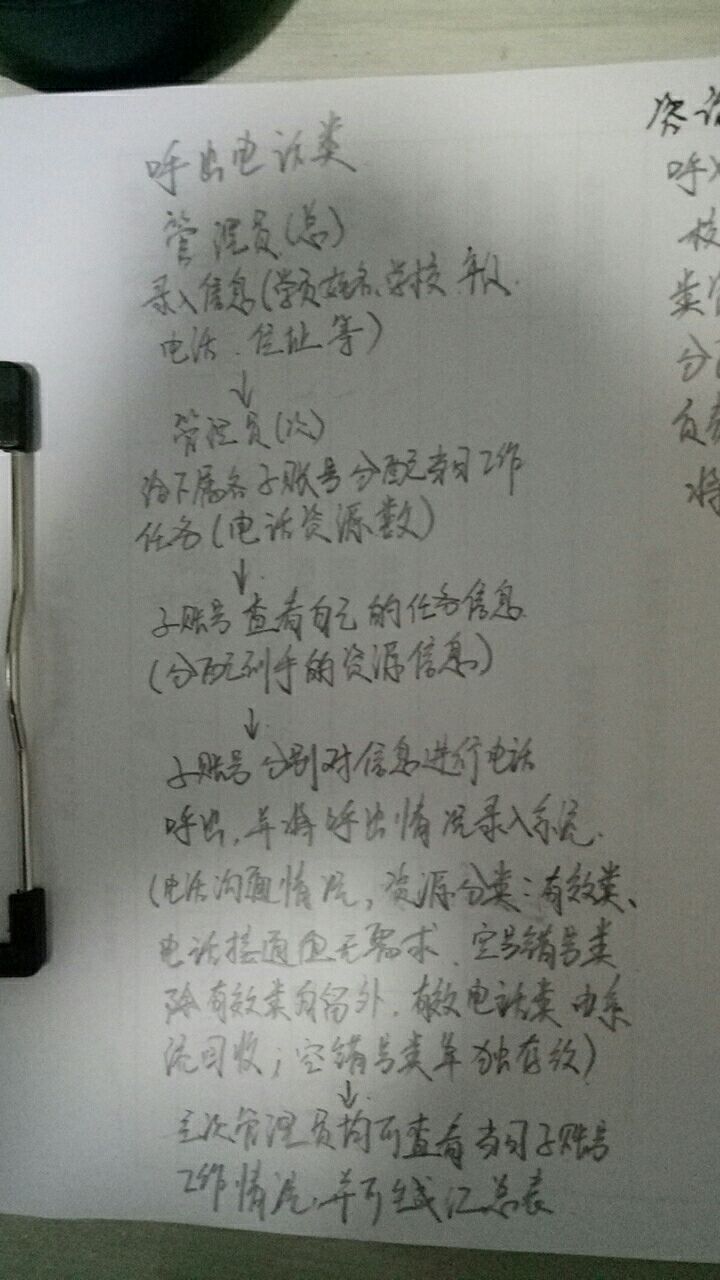 呼出电话类
管理员(总)
录入信息(学员姓名、学校、年级、
电话、住址等)
↓
管理员(次)
给下属各子账号分配当日工作
任务(电话资源数)
↓
子账号查看自己的任务信息
(分配到手的资源信息)
↓
子账号分别对信息进行电话
呼出,并将呼出情况录入系统.
(电话沟通情况,资源分类:有效类、
电话接通但无需求、空号错号类
除有效类自留外,有效电话类由系
统回收;空错号类单独存放)
↓
主次管理员均可查看当日子账号
工作情况,并可生成汇总表
咨
呼
校
类
分
负
将